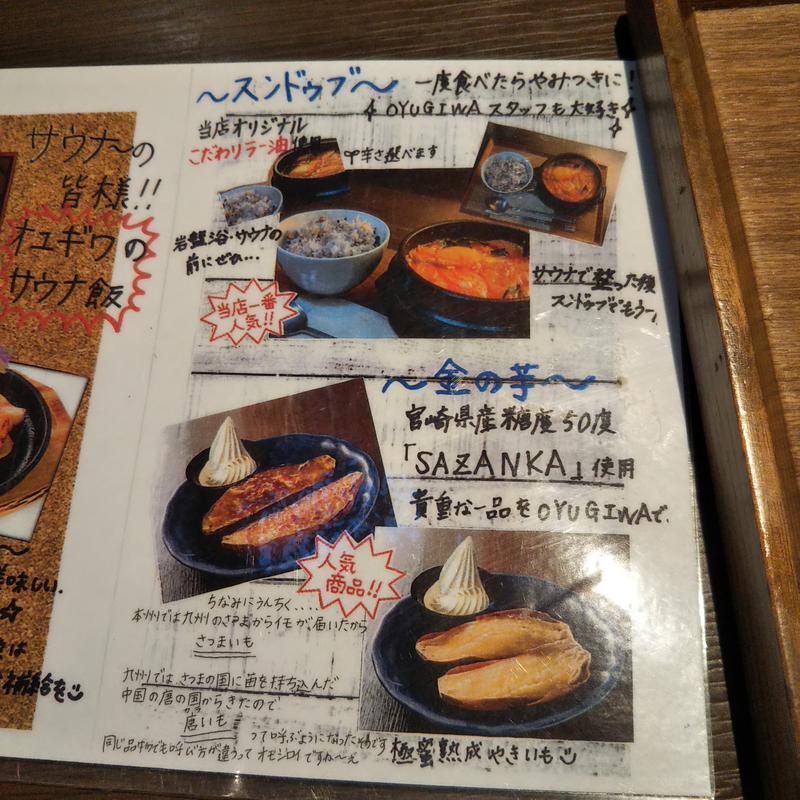 サウナ〜の
皆様!!
オユギワの
サウナ飯
美味しい.
補給を
〜スンドゥブ〜
一度食べたらやみつきに!
OYUGIWAスタッフも大好き
当店オリジナル
こだわりラー油使用
辛さ選べます
岩盤浴・サウナの
前にぜひ...
当店一番
人気!!
サウナで整った後
スンドゥブでもう一
〜金の芋〜
宮崎県産糖度50度
「SAZANKA」使用
貴重な一品をOYUGIWAで.
人気
商品!!
ちなみにうんちく....
本州では九州のさつまからイモが届いたから
さつまいも
九州では さつまの国に苗を持ち込んだ
中国の唐の国からきたので
唐いも
って呼ぶようになったそうです
同じ品物でも呼び方が違うって オモシロイですね〜
極蜜熟成やきいも